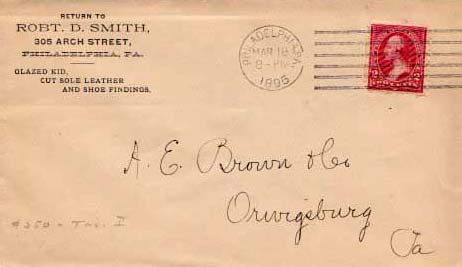 RETURN TO
ROBT. D. SMITH,
305 ARCH STREET,
PHILADELPHIA, PA.
GLAZED KID,
CUT SOLE LEATHER
AND SHOE FINDINGS.
PHILADELPHIA, PA.
MAR 18
8-PM
1895
A. E. Brown & Co
Orwigsburg
Pa
#250 -